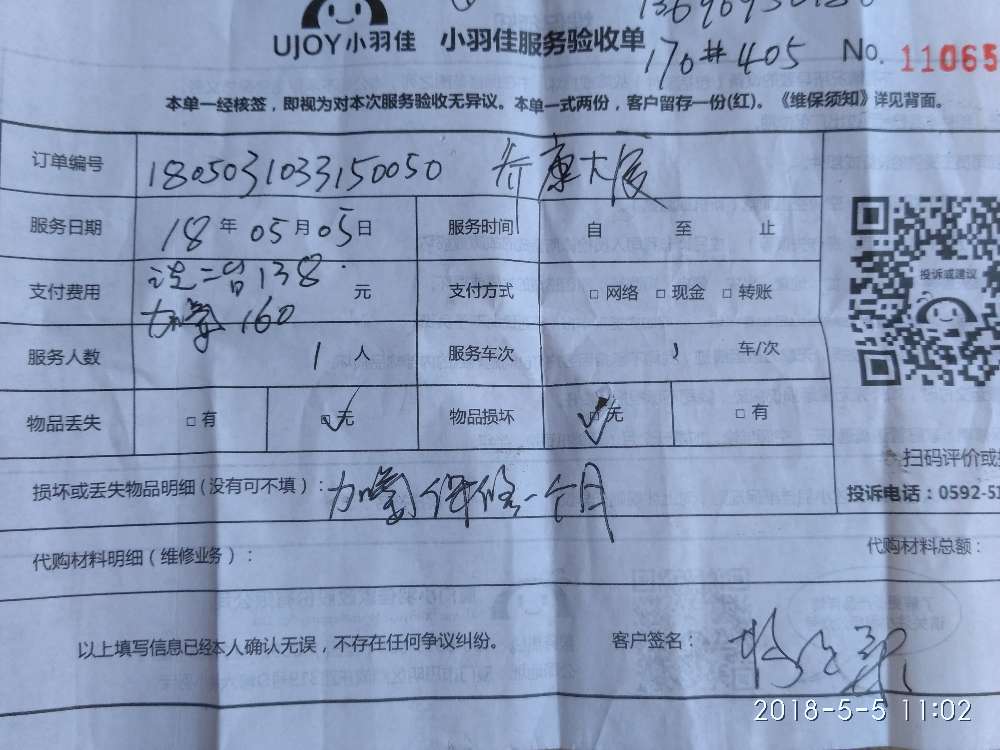 UJOY小羽佳 小羽佳服务验收单
170#405 No. 11065
本单一经核签，即视为对本次服务验收无异议。本单一式两份，客户留存一份(红)。《维保须知》详见背面。
订单编号 1805031033150050 康大厦
服务日期 18年05月05日 服务时间 自 至 止
投诉或建议
支付费用 138 元 支付方式 □网络 □现金 □转账
加 160
服务人数 1人 服务车次 1 车/次
物品丢失 □有 □无 物品损坏 □无 □有
扫码评价或
损坏或丢失物品明细(没有可不填)： 加氟保修一个月
投诉电话：0592-51
代购材料明细(维修业务)： 代购材料总额：
以上填写信息已经本人确认无误，不存在任何争议纠纷。 客户签名：
2018-5-5 11:02